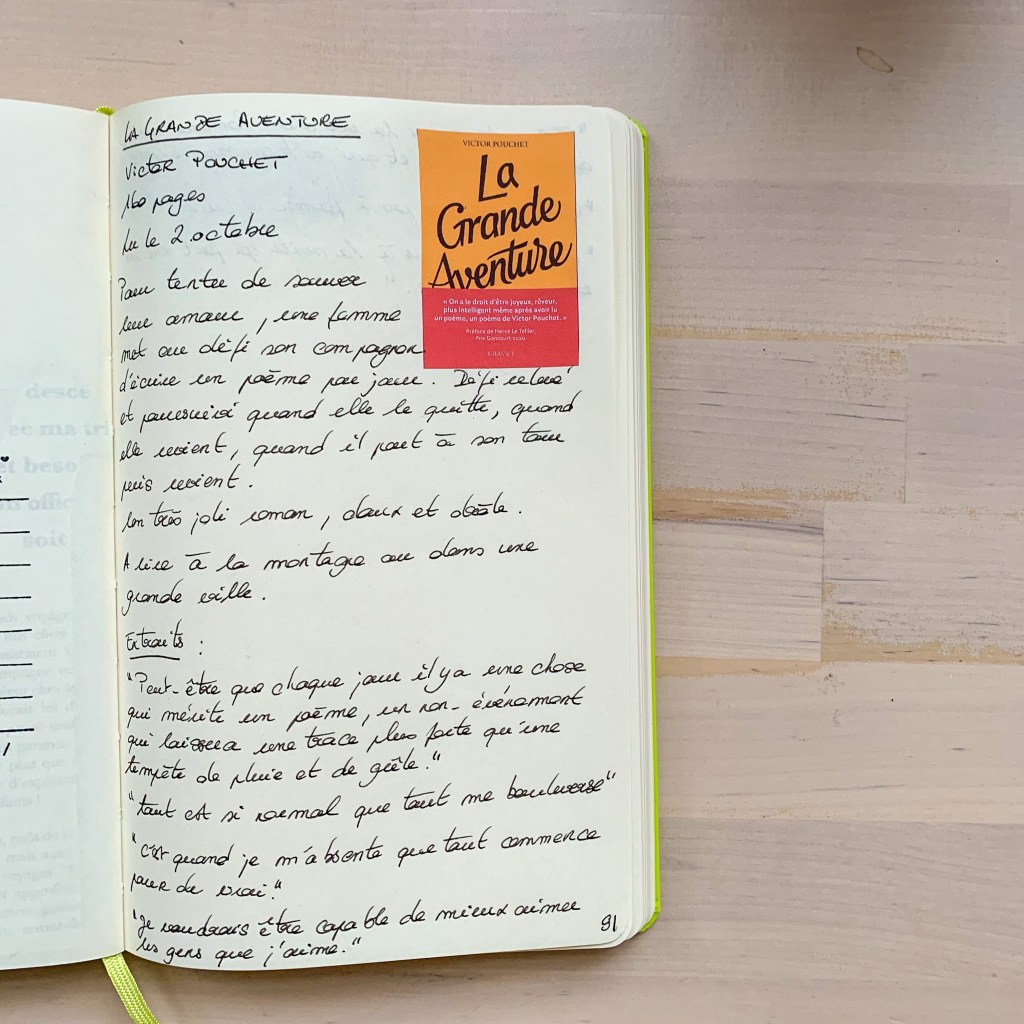 LA GRANDE AVENTURE
Victor POUCHET
160 pages
Lu le 2 octobre
Pour tenter de sauver
leur amour, une femme
met au défi son compagnon
d'écrire un poème par jour. Défi relevé
et poursuivi quand elle le quitte, quand
elle revient, quand il part à son tour
puis revient.
Un très joli roman, doux et
A lire à la montagne ou dans une
grande ville.
Extraits :
"Peut-être que chaque jour il y a une chose
qui mérite un poème, un non-événement
qui laissera une trace plus forte qu'une
tempête de pluie et de grêle."
"tout est si normal que tout me bouleverse"
"c'est quand je m'absente que tout commence
pour de vrai."
"Je voudrais être capable de mieux aimer
les gens que j'aime."
91
VICTOR POUCHET
La
Grande
Aventure
« On a le droit d'être joyeux, rêveur,
plus intelligent même après avoir lu
un poème, un poème de Victor Pouchet. »
Préface de Hervé Le Tellier,
Prix Goncourt 2020
GRASSET
desce
ec ma tri
et beso
on offic
soit